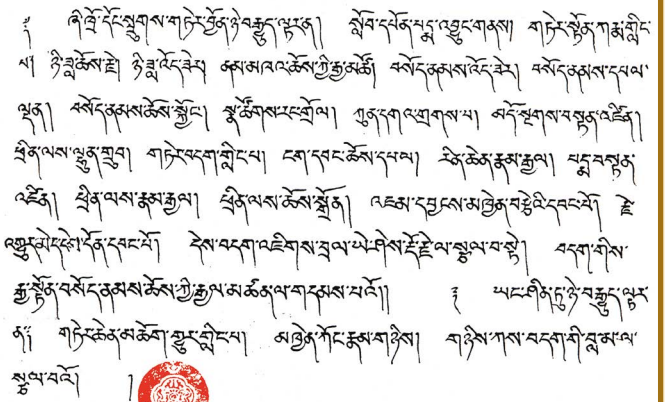 ༈ ཞི་ཁྲོ་དོང་སྤྲུགས་གཏེར་བྱོན་ཉེ་བརྒྱུད་ལྟར་ན། སློབ་དཔོན་པདྨ་འབྱུང་གནས། གཏེར་སྟོན་ཀརྨ་གླིང་
པ། ཉི་ཟླ་ཆོས་རྗེ། ཉི་ཟླ་འོད་ཟེར། ནམ་མཁའ་ཆོས་ཀྱི་རྒྱ་མཚོ། བསོད་ནམས་འོད་ཟེར། བསོད་ནམས་དཔལ་
ལྡན། བསོད་ནམས་ཆོས་སྐྱོང། སྣ་ཚོགས་རང་གྲོལ། ཀུན་དགའ་གྲགས་པ། མདོ་སྔགས་བསྟན་འཛིན།
ཕྲིན་ལས་ལྷུན་གྲུབ། གཏེར་བདག་གླིང་པ། ངག་དབང་ཆོས་དཔལ། རིན་ཆེན་རྣམ་རྒྱལ། པདྨ་བསྟན་
འཛིན། ཕྲིན་ལས་རྣམ་རྒྱལ། ཕྲིན་ལས་ཆོས་སྒྲོན། འཇམ་དབྱངས་མཁྱེན་བརྩེའི་དབང་པོ། རྗེ་
འགྱུར་མེད་ངེས་དོན་དབང་པོ། དེས་བདག་འཇིགས་བྲལ་ཡེ་ཤེས་རྡོ་རྗེ་ལ་སྩལ་བ་སྟེ། བདག་གིས་
རྒྱ་སྟོན་བསོད་ནམས་ཆོས་ཀྱི་རྒྱལ་མཚན་ལ་གདམས་པའོ།། ༈ ཡང་ཤིན་ཏུ་ཉེ་བརྒྱུད་ལྟར་
ན༔ གཏེར་ཆེན་མཆོག་གྱུར་གླིང་པ། མཁྱེན་ཀོང་རྣམ་གཉིས། གཉིས་ཀས་བདག་གི་བླ་མ་ལ་
སྩལ་བའོ། །